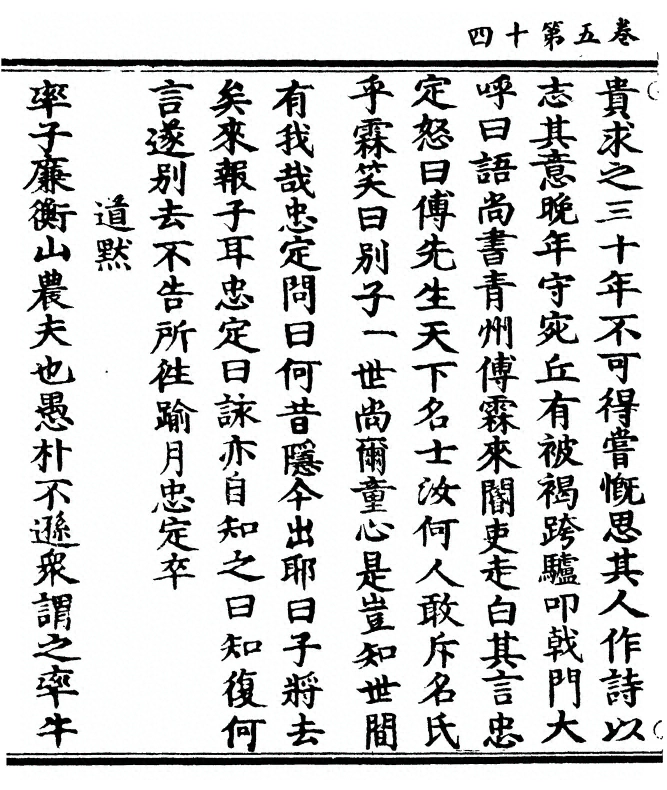 卷五第十四
貴求之三十年不可得嘗慨思其人作詩以
志其意晚年守宛丘有被褐跨驢叩戟門大
呼曰語尚書青州傅霖來閽吏走白其言忠
定怒曰傅先生天下名士汝何人敢斥名氏
乎霖笑曰別子一世尚爾童心是豈知世間
有我哉忠定問曰何昔隱今出耶曰子將去
矣來報子耳忠定曰詠亦自知之曰知復何
言遂別去不告所徃踰月忠定卒
道默
率子廉衡山農夫也愚朴不遜衆謂之率牛